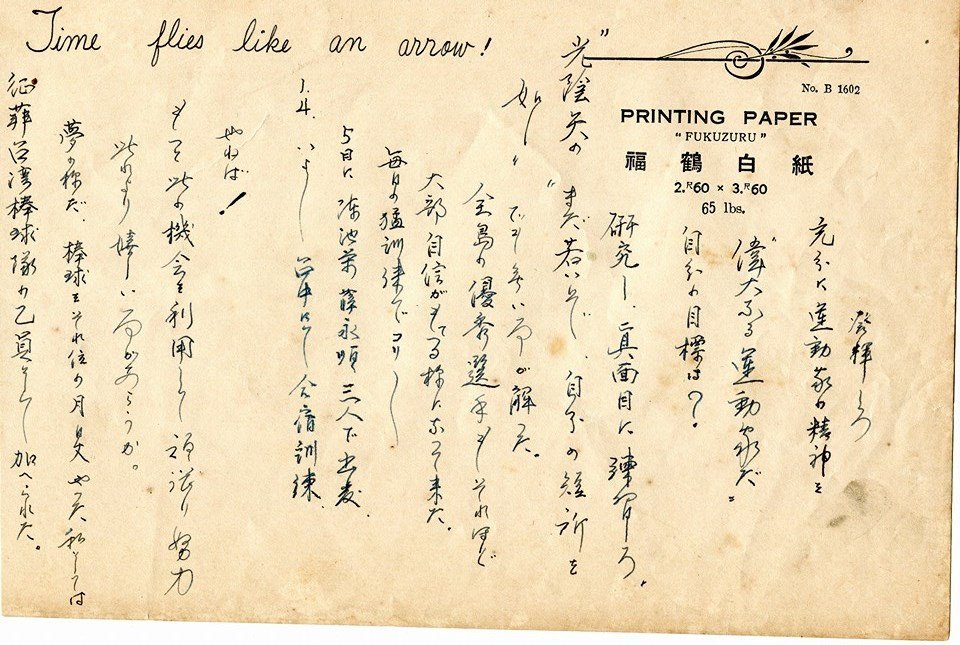 Time flies like an arrow!
No. B 1602
PRINTING PAPER
"FUKUZURU"
福鶴白紙
2.R60 × 3.R60
65 lbs.
征菲台湾棒球隊の乙員として加へられた。
夢の様だ、棒球をそれ位の月日丈やった私としては
此れより嬉しい事があらうか。
もっと此の機会を利用して 努力
せねば!
1.4. いよ〳〵台中にて合宿訓練
5日に 陳池榮 薛永順 三人で出発.
毎日の猛訓練でコリ〳〵
大部自信がもてる様になって来た。
全島の優秀選手もそれほど
でも無い事が解った。
"光陰矢の
如し"
"まだ若いぞ、自分の短所を
研究し、真面目に練習しろ"
自分の目標は?
"偉大なる運動家だ"
充分に運動家の精神を
発揮しろ